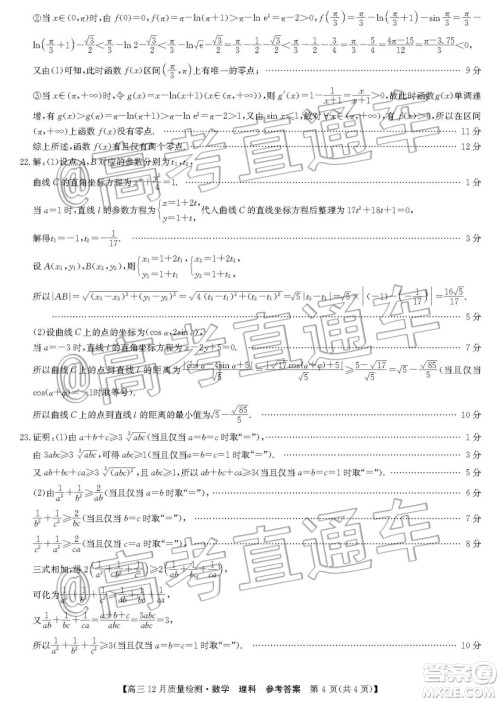 ②当x∈(0,π)时,由f(0)=0,f(π)=π-ln(π+1)>π-ln e²=π-2>0,f(π/3)=π/3-ln(π/3+1)-sinπ/3=π/3-
ln(π/3+1)-√3/2<π/3-ln 2-√3/2<π/3-ln√e-√3/2=π/3-1/2-√3/2<π/3-1/2-3/4=π/3-5/4=(4π-15)/12=(π-3.75)/3<0.
又由(1)可知,此时函数f(x)区间(π/3,π)上有唯一的零点; 9分
③当x∈(π,+∞)时,令g(x)=x-ln(x+1)(x∈(π,+∞)),则g′(x)=1-1/(x+1)=x/(x+1)>0,故此时函数g(x)单调递
增,有g(x)>g(π)=π-ln(1+π)>π-ln e²=π-2>1,
(π,+∞)上函数f(x)没有零点. 11分
综上所述,函数f(x)有且仅有两个零点. 12分
22.解:(1)设点A,B对应的参数分别为t₁,t₂,
曲线C的直角坐标方程为x²+y²/4=1. 1分
当a=1时,直线l的参数方程为{x=1+2t, y=1+t 代入曲线C的直角坐标方程后整理为17t²+18t+1=0,
解得t₁=-1,t₂=-1/17. 3分
设A(x₁,y₁),B(x₂,y₂),有{x₁=1+2t₁, y₁=1+t₁ {x₂=1+2t₂, y₂=1+t₂
所以|AB|=√((x₁-x₂)²+(y₁-y₂)²)=√(4(t₁-t₂)²+(t₁-t₂)²)=√5|t₁-t₂|=√5|(-1)-(-1/17)|=16√5/17.
5分
(2)设曲线C上的点的坐标为(cos α,2sin α),
当a=-3时,直线l的直角坐标方程为x-2y+5=0.
所以曲线C上的点到直线l的距离为|cos α-4sin α+5|/√5=
cos(α+φ)=-1时取等号).
所以曲线C上的点到直线l距离的最小值为√5-√85/5. 10分
23.证明:(1)由a+b+c≥3∛abc(当且仅当a=b=c时取“=”), 1分
由3abc≥3∛abc,可得abc≥1(当且仅当a=b=c=1时取“=”), 3分
又由ab+bc+ca≥3∛(abc)²≥3(当且仅当a=b=c=1时取“=”). 5分
(2)由1/a²+1/b²≥2/ab(当且仅当a=b时取“=”), 6分
1/b²+1/c²≥2/bc(当且仅当b=c时取“=”), 7分
1/c²+1/a²≥2/ca(当且仅当a=c时取“=”), 8分
三式相加,得2(1/a²+1/b²+1/c²)≥2(1/ab+1/bc+1/ca)(当且仅当a=b=c时取“=”),
又由1/ab+1/bc+1/ca=(a+b+c)/abc=3abc/abc=3,
所以1/a²+1/b²+1/c²≥3(当且仅当a=b=c=1时取“=”). 10分
【高三12月质量检测·数学 理科 参考答案 第4页(共4页)】
@高考直通车
@高考直通车